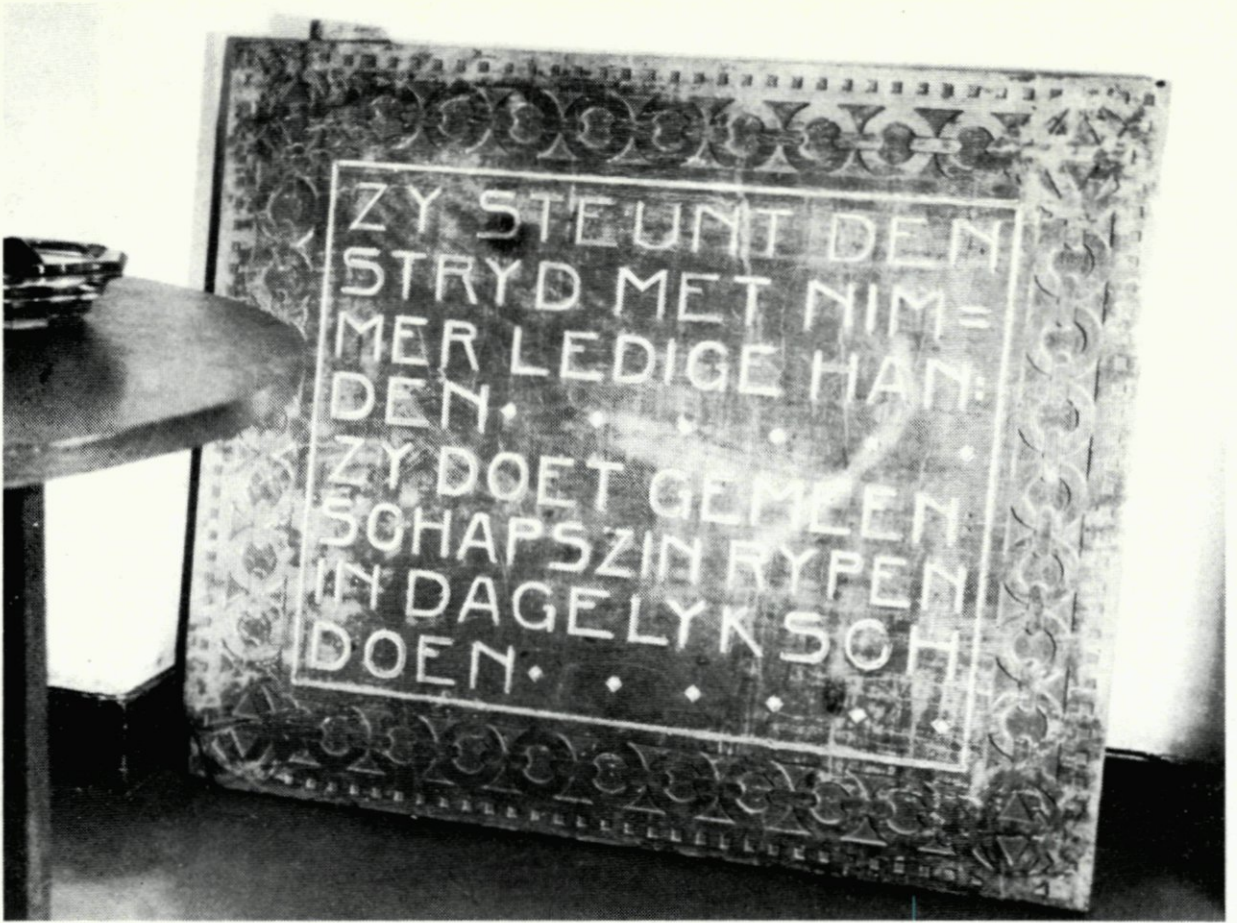 ZY STEUNT DEN
STRYD MET NIM=
MER LEDIGE HAN:
DEN· · · · · ·
ZY DOET GEMEEN
SCHAPSZIN RYPEN
IN DAGELYKSCH
DOEN· · · · · ·